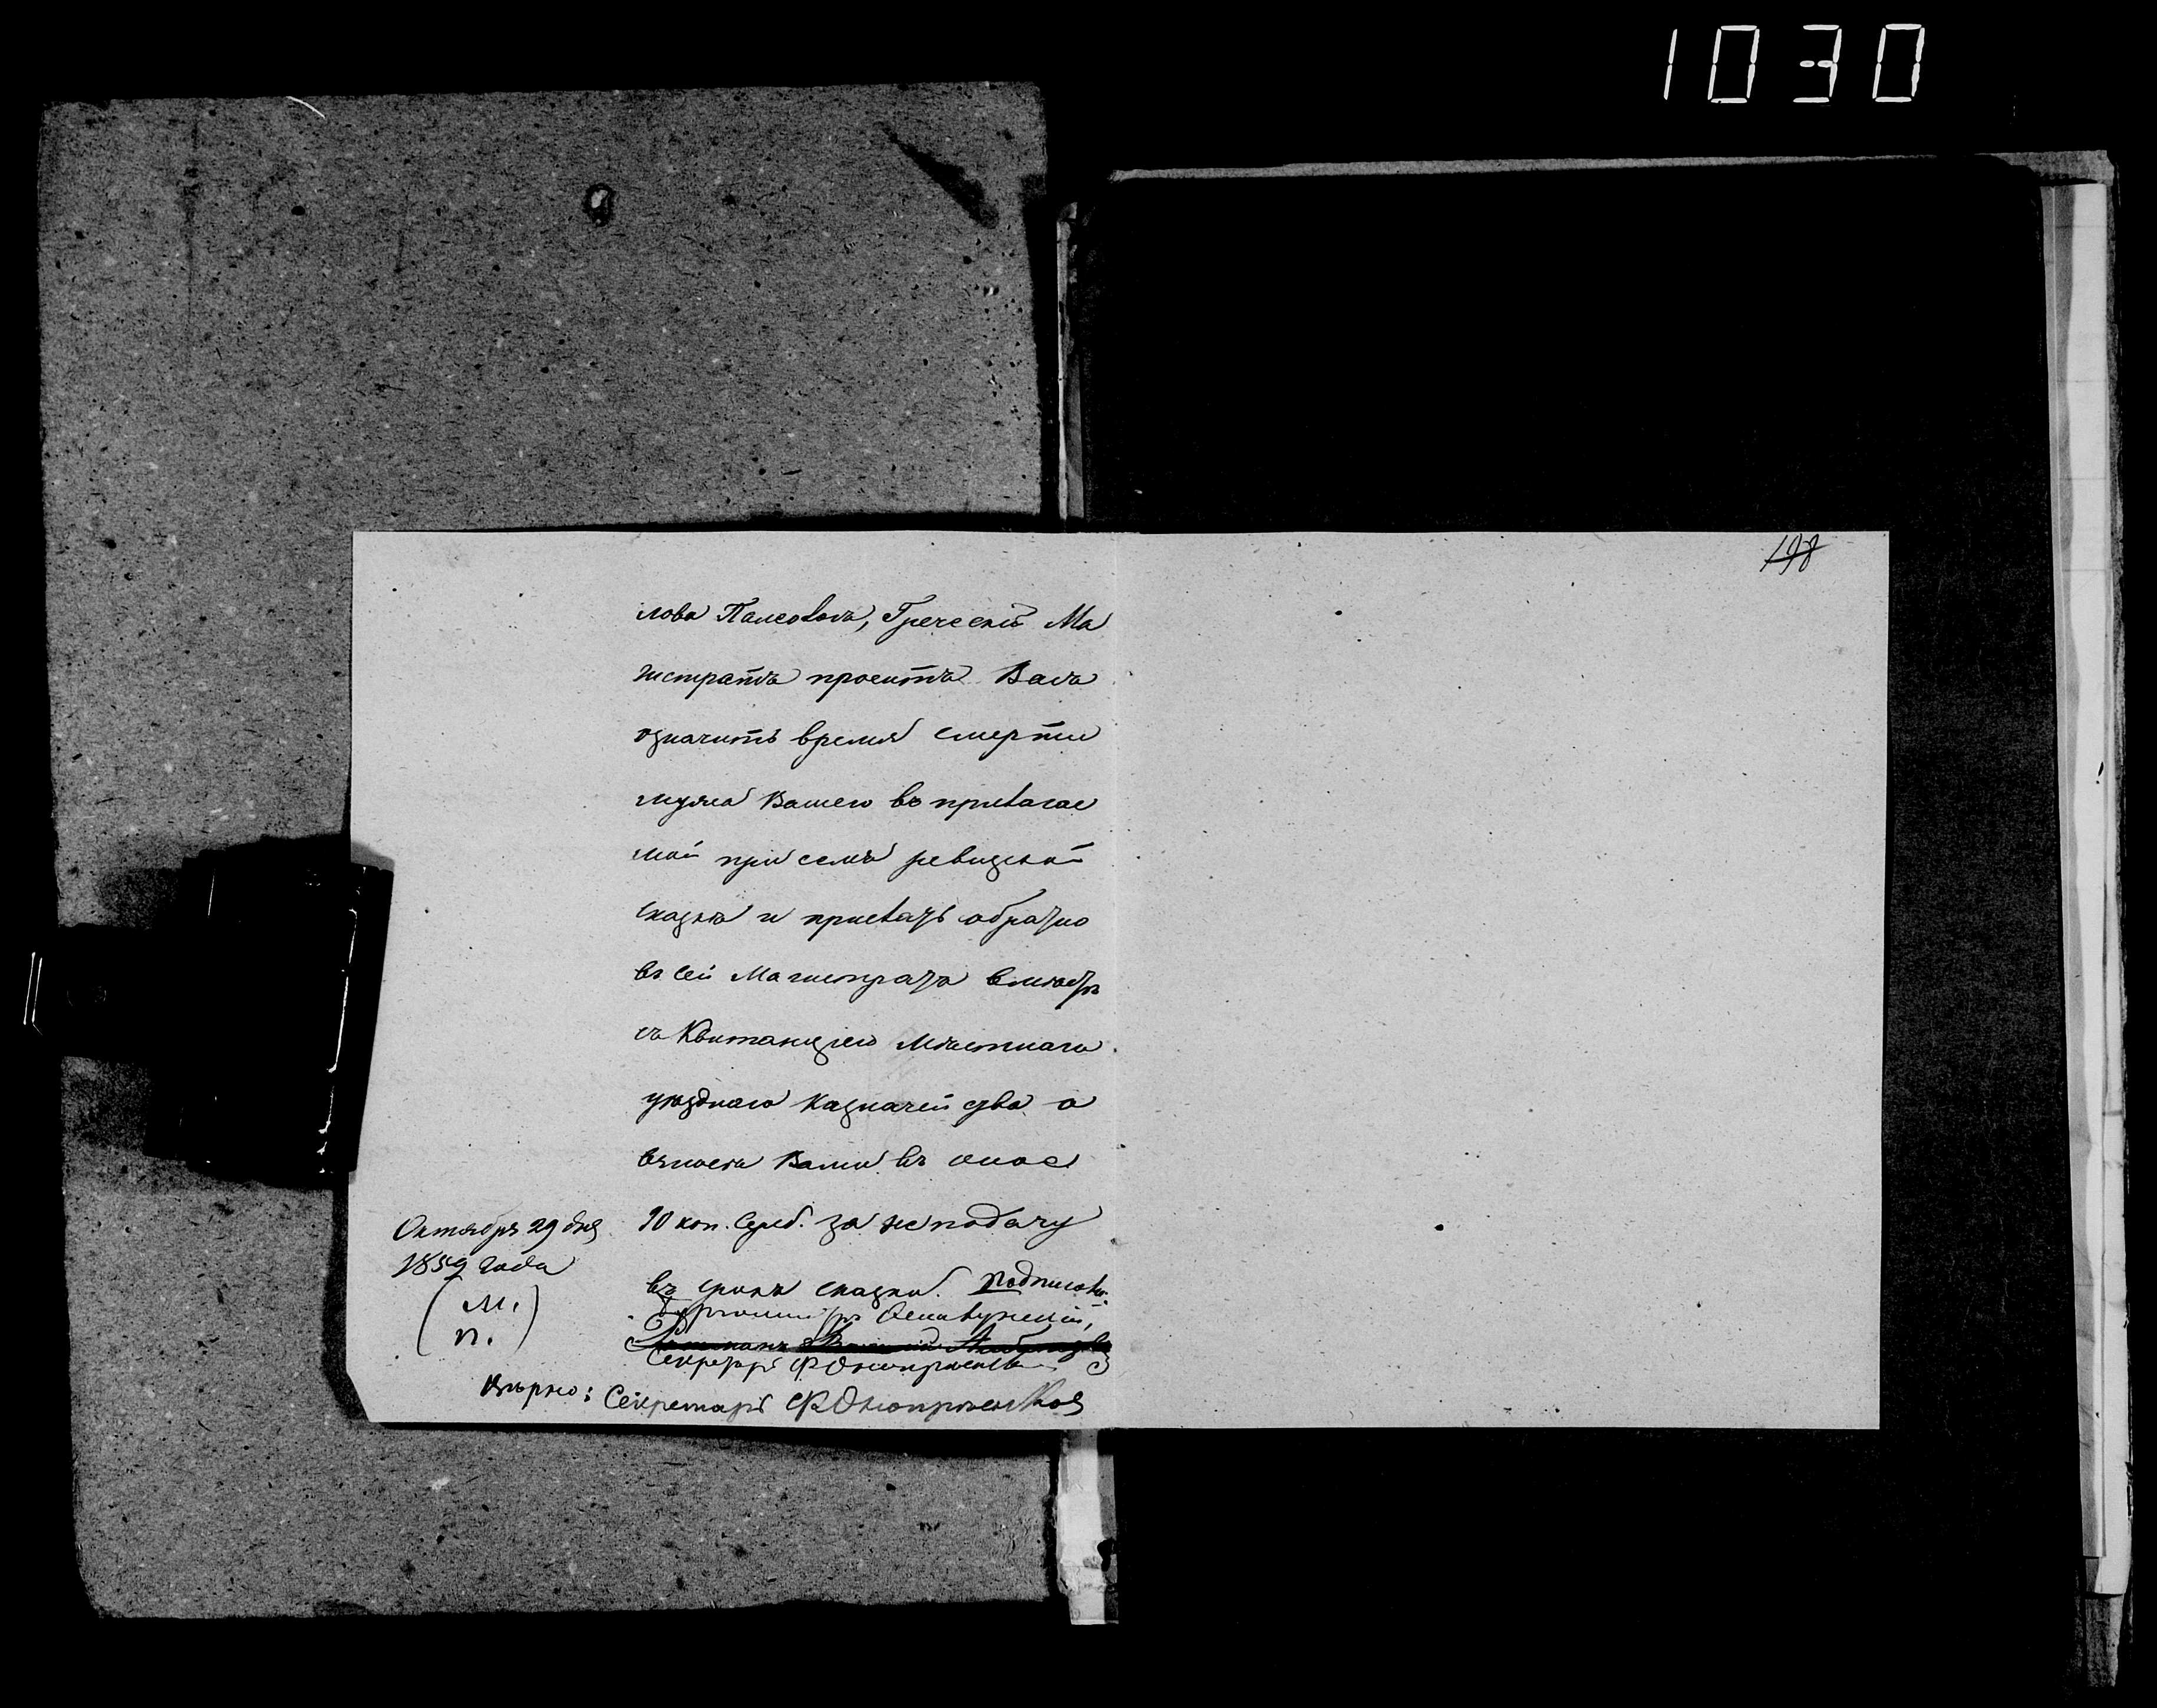 1030
198
лова Палеолога, Греческій Ма
гистратъ проситъ Васъ
означить время смерти
мужа Вашего въ прилагае
мой при семъ ревизской
сказкѣ и прислать обратно
въ сей Магистратъ вмѣстѣ
съ Квитанціею Мѣстнаго
уѣзднаго Казначейства о
взносѣ Вами въ оное
90 коп. Сереб. за неподачу
въ срокъ сказки. Подписали:
Бургомистръ
Секретарь
Октября 29 дня
1859 года
(М.
П.)
Вѣрно: Секретарь